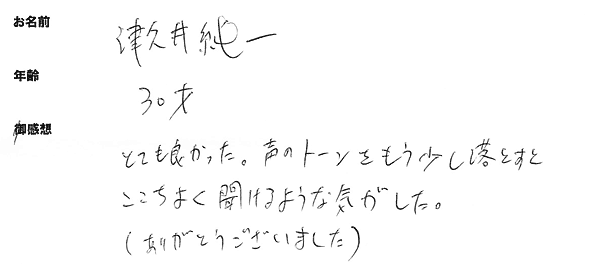 お名前
津久井純一
年齢
30才
御感想
とても良かった。声のトーンをもう少し落とすと
ここちよく聞けるような気がした。
(ありがとうございました)